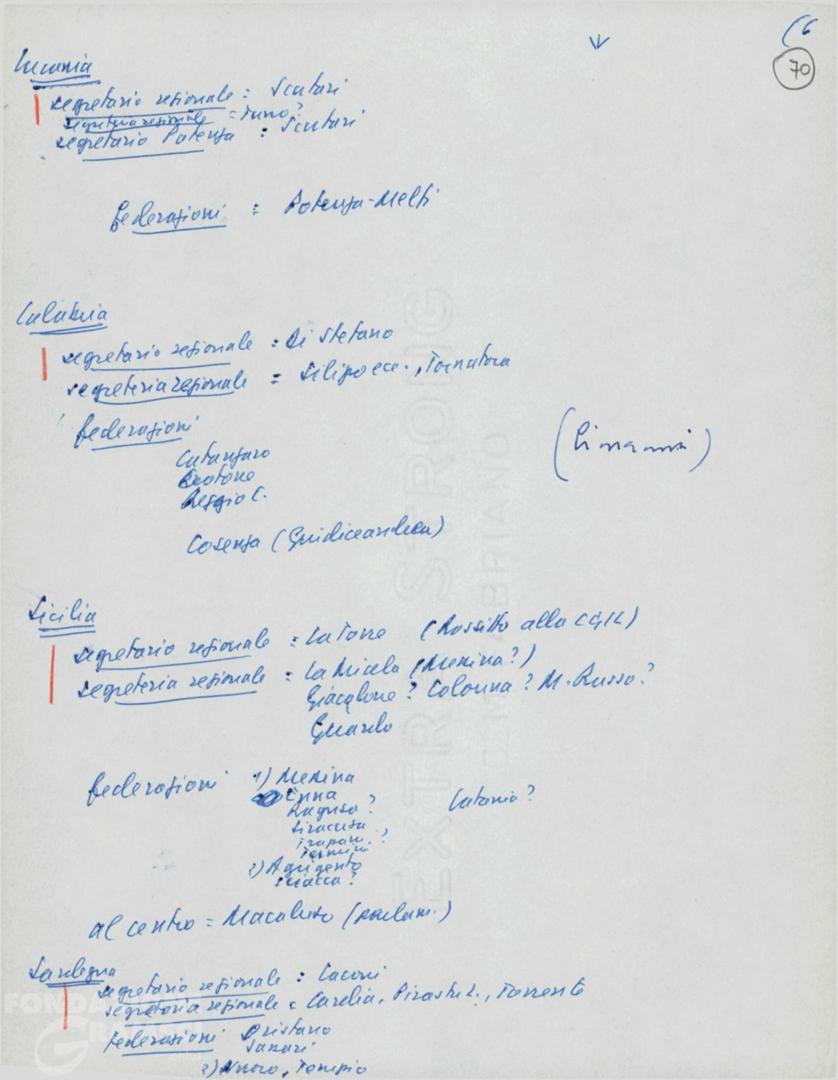 70
Lucania
segretario regionale : Scutari
segreteria regionale =
segretario Potenza : Scutari
federazioni : Potenza-Melfi
Calabria
segretario regionale : Di Stefano
segreteria regionale = Silipo ecc., Tornatora
federazioni
Catanzaro
Crotone
Reggio C.
Cosenza (Giudiceandrea)
(Cinanni)
Sicilia
segretario regionale : La Torre (Rossitto alla CGIL)
segreteria regionale : La Micela (Messina?)
Giacalone? Colonna? M. Russo?
Guardo
federazioni 1) Messina
Enna
Ragusa? Catania?
Siracusa
Trapani?
Termini
2) Agrigento
Sciacca?
al centro = Macaluso (parlam.)
Sardegna
segretario regionale : Laconi
segreteria regionale = Cardia, Pirastu L., Torrente
federazioni Oristano
Sassari
2) Nuoro, Tempio
EXTRA STRONG
C.M. FABRIANO
FONDAZIONE
GRAMSCI